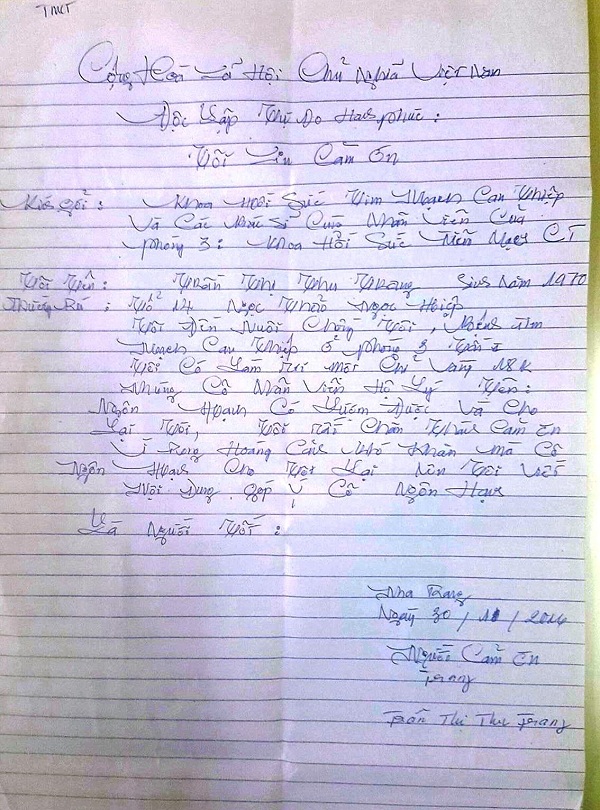 TMCT
Cộng Hoà Xã Hội Chủ Nghĩa Việt Nam
Độc Lập Tự Do Hạnh phúc:
Tôi Xin Cảm Ơn
Kính gởi: Khoa Hồi Sức Tim Mạch Can Thiệp
Và Các Bác Sĩ Cùng Nhân Viên Của
phòng 3: Khoa Hồi Sức Tim Mạch CT
Tôi Tên: Trần Thị Thu Trang Sinh Năm 1970
Thường Trú: Tổ 14 Ngọc Thảo Ngọc Hiệp
Tôi Đến Nuôi Chồng Tôi, Bệnh Tim
Mạch Can Thiệp Ở phòng 3
Tôi Có Làm Rơi một Chỉ Vàng 18K
Nhưng Cô Nhân Viên Hộ Lý Tên:
Ngôn Hạnh Có Lượm Được Và Cho
Lại Tôi, Tôi rất Chân Thành Cảm Ơn
Vì Trong Hoàng Cảnh Khó Khăn mà Cô
Ngôn Hạnh Cho Tôi Lại Nên Tôi Viết
Nội Dung góp Ý Cô Ngôn Hạnh
Là Người Tốt:
Nha Trang
Ngày 30 / 11 / 2014
Người Cảm Ơn
Trang
Trần Thị Thu Trang